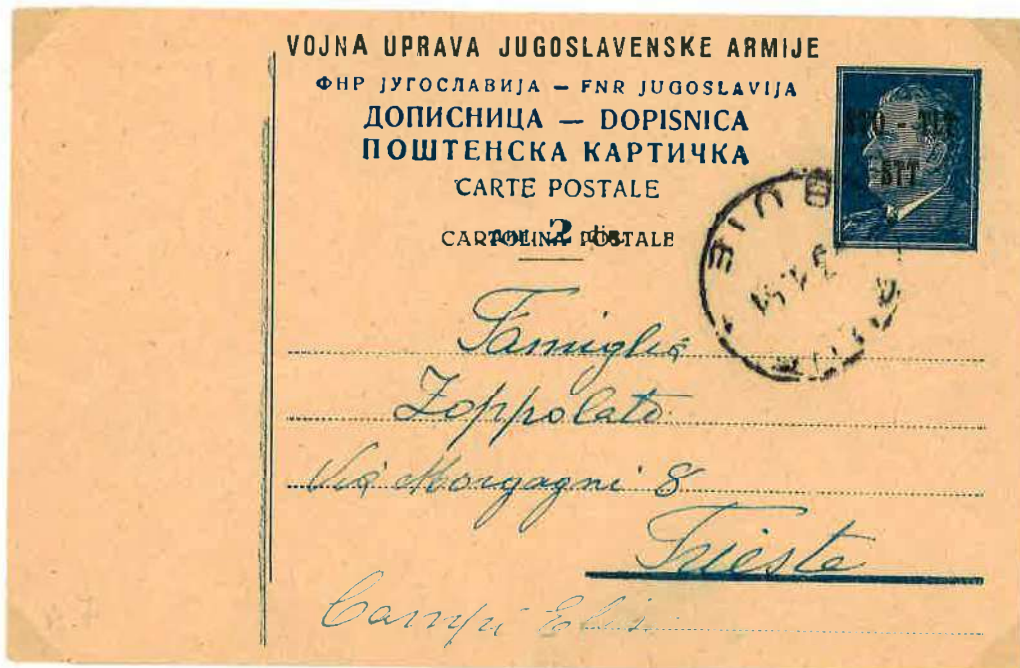 VOJNA UPRAVA JUGOSLAVENSKE ARMIJE
ФНР ЈУГОСЛАВИЈА — FNR JUGOSLAVIJA
ДОПИСНИЦА — DOPISNICA
ПОШТЕНСКА КАРТИЧКА
CARTE POSTALE
CARTOLINA POSTALE
2 din
STO - TLT
STT
Famiglia
Zoppolato
Via Morgagni 8
Trieste